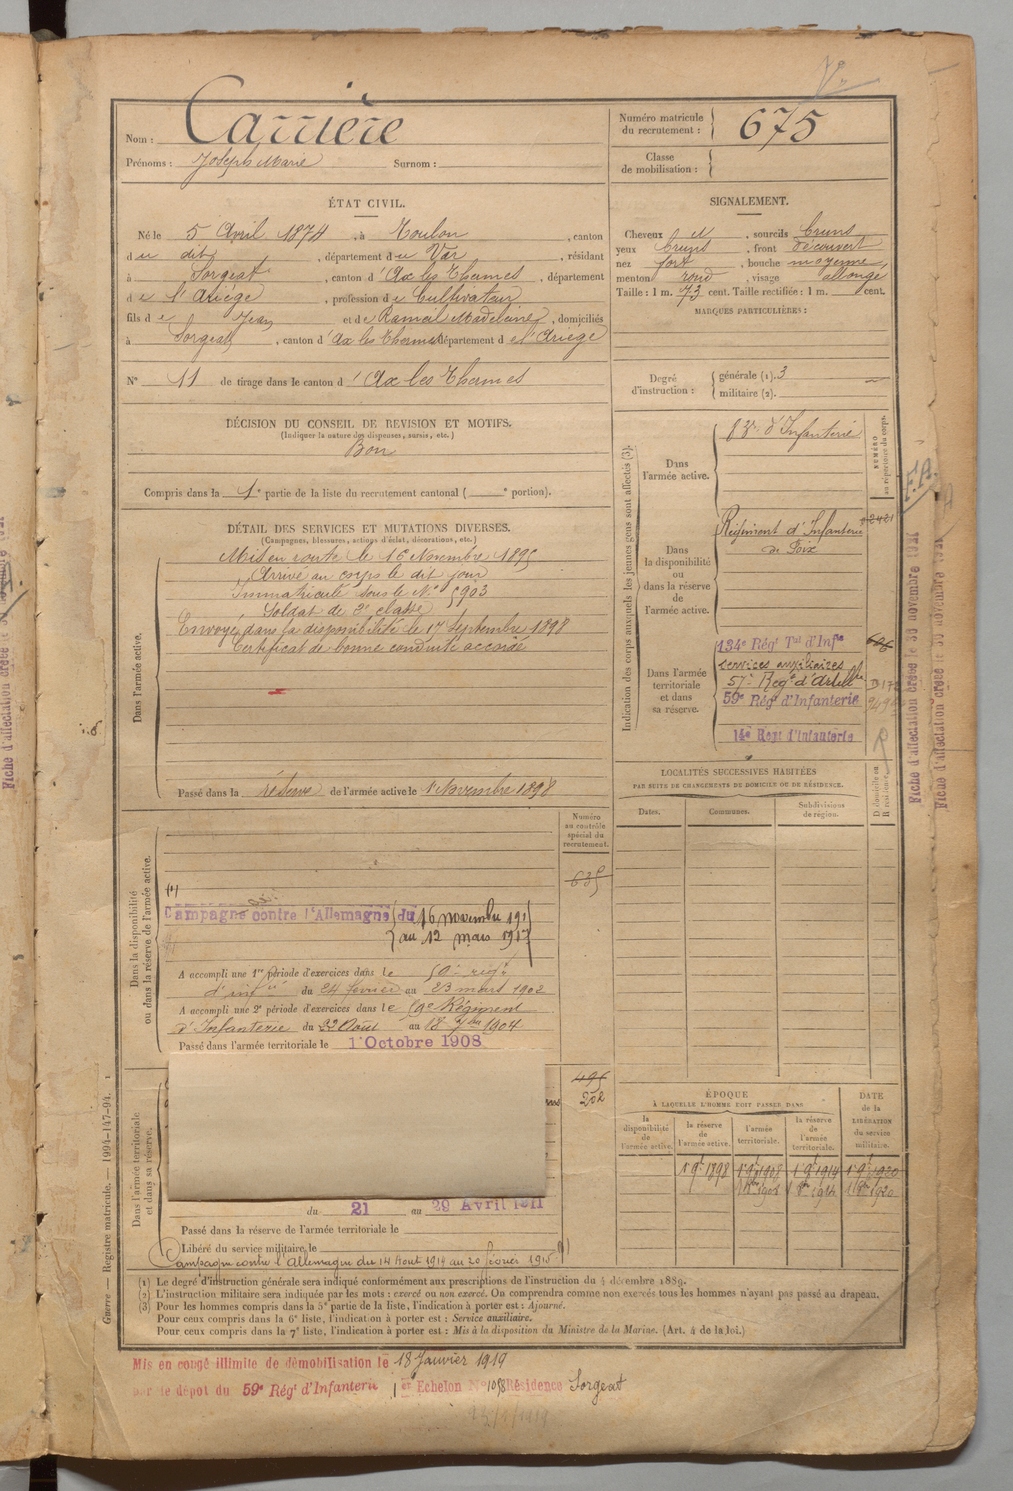 Nom : Carrière
Prénoms : Joseph Marie Surnom :
Numéro matricule du recrutement : 675
Classe de mobilisation :
ÉTAT CIVIL.
Né le 5 Avril 1874, à Toulon, canton
du dit, département du Var, résidant
à Sorgeat, canton d'Ax les Thermes, département
de l'Ariège, profession de Cultivateur
fils de Jean et de Rameil Madeleine, domiciliés
à Sorgeat, canton d'Ax les Thermes département de l'Ariège
N° 11 de tirage dans le canton d'Ax les Thermes
SIGNALEMENT.
Cheveux et, sourcils bruns
yeux bruns, front découvert
nez fort, bouche moyenne,
menton rond, visage allongé
Taille : 1 m. 73 cent. Taille rectifiée : 1 m. cent.
MARQUES PARTICULIÈRES :
Degré d'instruction : générale (1). 3
militaire (2).
DÉCISION DU CONSEIL DE REVISION ET MOTIFS.
(Indiquer la nature des dispenses, sursis, etc.)
Bon
Compris dans la 1e partie de la liste du recrutement cantonal ( e portion).
DÉTAIL DES SERVICES ET MUTATIONS DIVERSES.
(Campagnes, blessures, actions d'éclat, décorations, etc.)
Dans l'armée active.
Mis en route le 16 Novembre 1895
Arrivé au corps le dit jour
Immatriculé sous le N° 5903
Soldat de 2e classe
Envoyé dans la disponibilité le 17 Septembre 1898
Certificat de bonne conduite accordé
Passé dans la réserve de l'armée active le 1 Novembre 1898
Indication des corps auxquels les jeunes gens sont affectés (3).
NUMÉRO au répertoire du corps.
Dans l'armée active.
d'Infanterie
Dans la disponibilité ou dans la réserve de l'armée active.
Régiment d'Infanterie
de Foix
Dans l'armée territoriale et dans sa réserve.
134e Régt Tal d'Infie
services auxiliaires
57e Regt d'Artillie
59e Régt d'Infanterie
14e Regt d'Infanterie
LOCALITÉS SUCCESSIVES HABITÉES
PAR SUITE DE CHANGEMENTS DE DOMICILE OU DE RÉSIDENCE.
Dates. Communes. Subdivisions de région. D domicile ou R résidence.
Numéro au contrôle spécial du recrutement.
635
Dans la disponibilité ou dans la réserve de l'armée active.
Campagne contre l'Allemagne du 16 novembre 191
au 12 mars 1917
A accompli une 1re période d'exercices dans le 59e régt
d'infie du 24 février au 23 mars 1902
A accompli une 2e période d'exercices dans le 59e Régiment
d'Infanterie du 22 Août au 18 7bre 1904
Passé dans l'armée territoriale le 1 Octobre 1908
Dans l'armée territoriale et dans sa réserve.
495
202
du 21 au 29 Avril 1911
Passé dans la réserve de l'armée territoriale le
Libéré du service militaire le
Campagne contre l'Allemagne du 14 Aout 1914 au 20 février 1915
ÉPOQUE
À LAQUELLE L'HOMME DOIT PASSER DANS
la disponibilité de l'armée active. la réserve de l'armée active. l'armée territoriale. la réserve de l'armée territoriale. DATE de la LIBÉRATION du service militaire.
1 9bre 1898 1 9bre 1908 1 9bre 1914 1 9bre 1920
1 8bre 1908 1 8bre 1914 1 8bre 1920
(1) Le degré d'instruction générale sera indiqué conformément aux prescriptions de l'instruction du 4 décembre 1889.
(2) L'instruction militaire sera indiquée par les mots : exercé ou non exercé. On comprendra comme non exercés tous les hommes n'ayant pas passé au drapeau.
(3) Pour les hommes compris dans la 5e partie de la liste, l'indication à porter est : Ajourné.
Pour ceux compris dans la 6e liste, l'indication à porter est : Service auxiliaire.
Pour ceux compris dans la 7e liste, l'indication à porter est : Mis à la disposition du Ministre de la Marine. (Art. 4 de la loi.)
Mis en congé illimité de démobilisation le 18 Janvier 1919
par le dépôt du 59e Régt d'Infanterie 1er Echelon N° 1098 Résidence Sorgeat
Guerre — Registre matricule. — 1994-147-94.
Fiche d'affectation créée le 30 novembre 1931
Fiche d'affectation créée le 30 novembre 1931